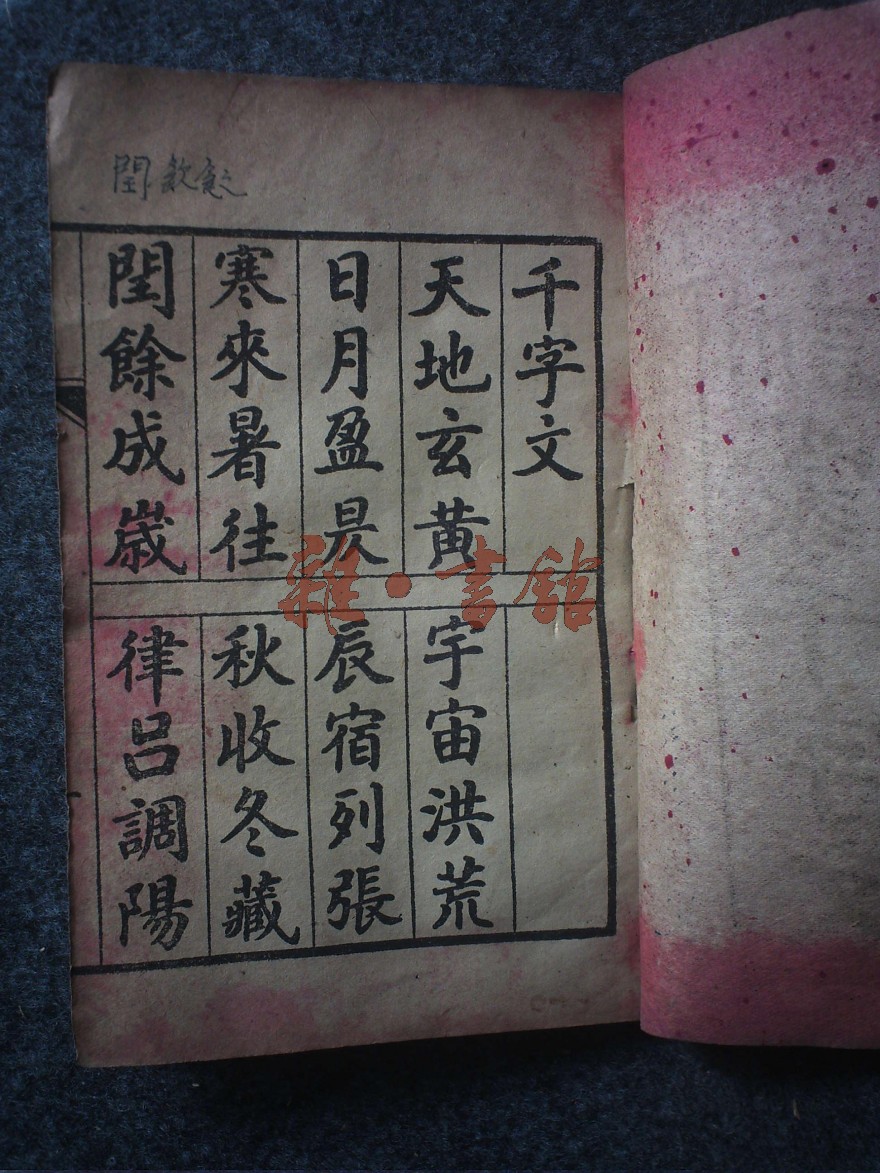 千字文
天地玄黃
宇宙洪荒
日月盈昃
辰宿列張
寒來暑往
秋收冬藏
閏餘成歲
律呂調陽
閏
雜·書館